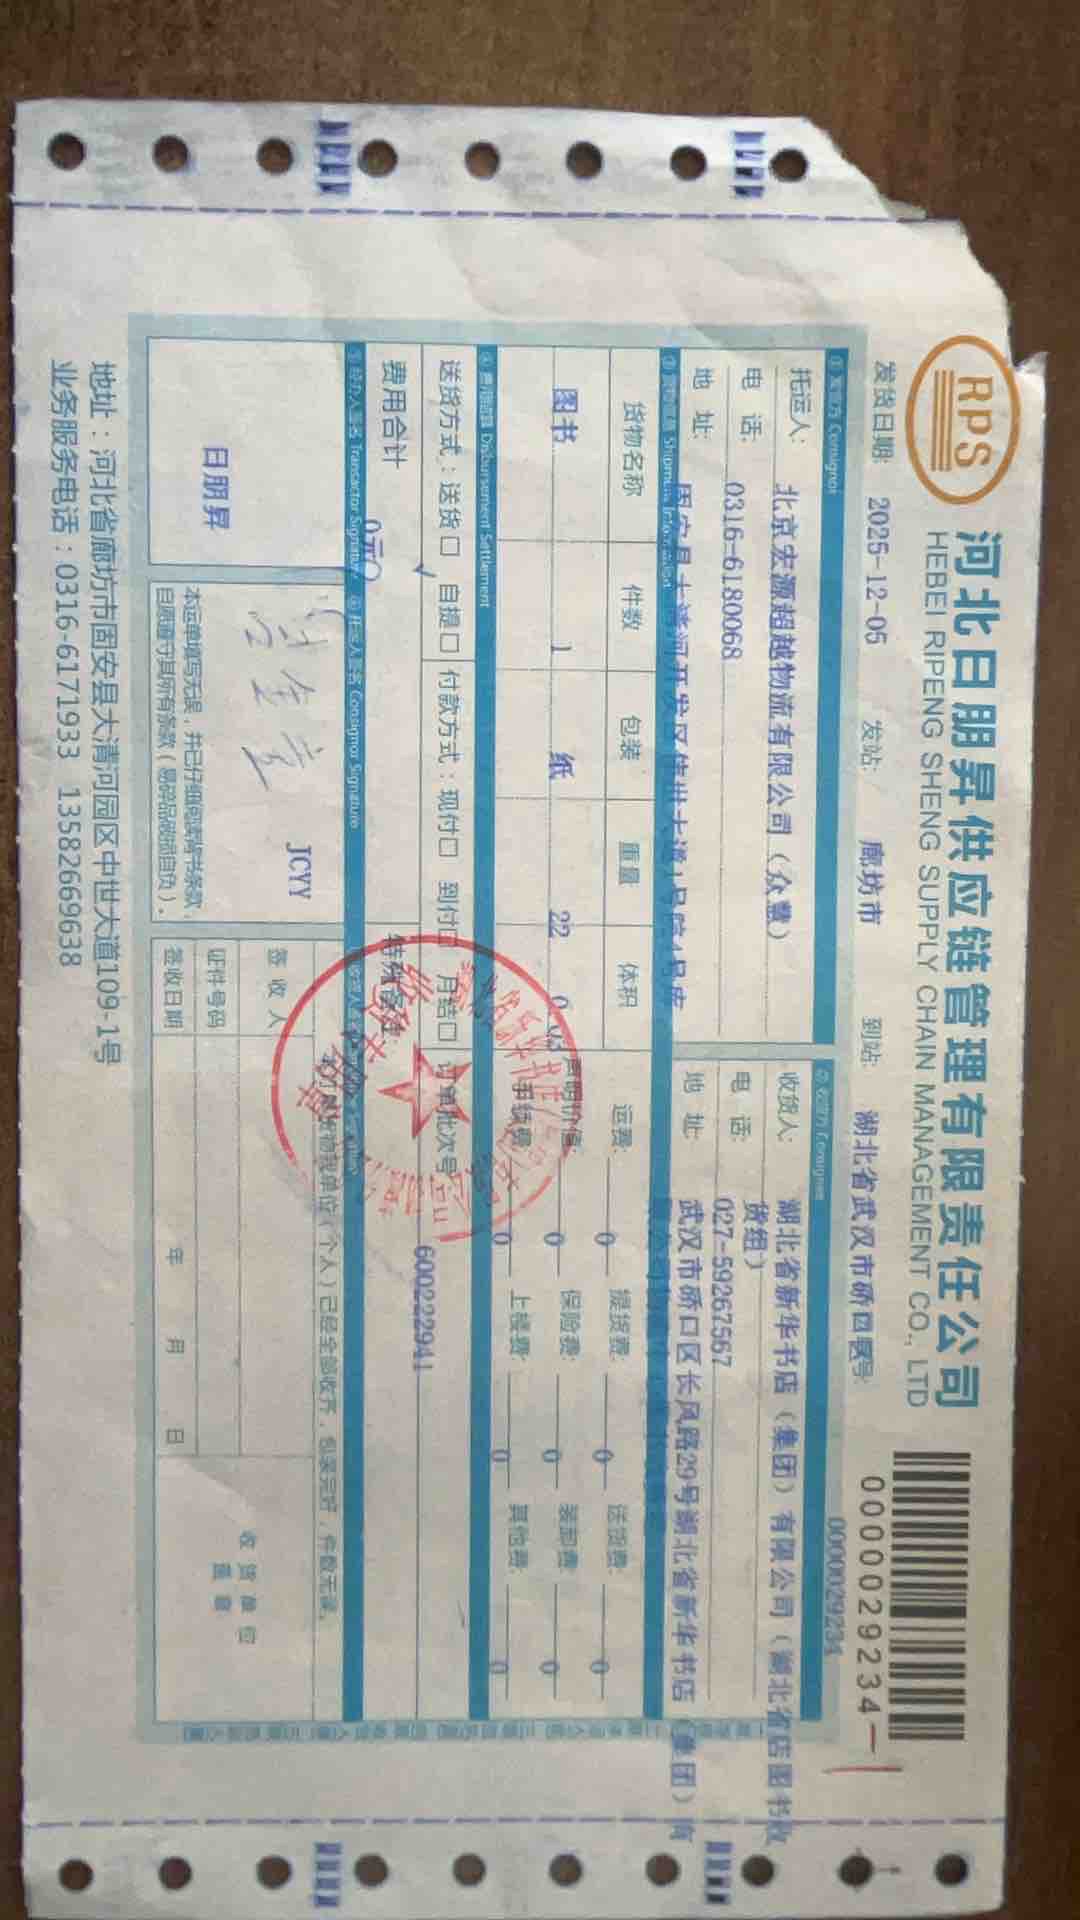 RPS
河北日朋昇供应链管理有限责任公司
HEBEI RIPENG SHENG SUPPLY CHAIN MANAGEMENT CO., LTD
0000029234
发货日期: 2025-12-05 发站: 廊坊市 到站: 湖北省武汉市硚口区
0000029234
① 发货方 Consignor
② 收货方 Consignee
托运人: 北京宏源超越物流有限公司（众慧）
电 话: 0316-6180068
地 址:
固安县大清河开发区伟世大道1号院4号库
收货人: 湖北省新华书店（集团）有限公司（湖北省店图书收
货组）
电 话: 027-59267567
地 址: 武汉市硚口区长风路29号湖北省新华书店（集团）有
货物名称 件数 包装 重量 体积
图书 1 纸 22
运费: 0 提货费: 0 送货费: 0
声明价值: 0 保险费: 0 装卸费: 0
手续费: 0 上楼费: 0 其他费: 0
④ 费用结算 Disbursement Settlement
送货方式：送货□ 自提□ 付款方式：现付□ 到付□ 月结□ 订单批次号 600222941
费用合计 0元
特殊备注:
⑤ 经办人签名 Transactor Signature ⑥ 托运人签名 Consignor Signature
日朋昇
JCYY
本运单填写无误，并已仔细阅读背书条款，
自愿遵守其所有条款（易碎品破损自负）。
单位(个人)已经全部收齐，包装完好，件数无误。
签 收 人
证件号码
签收日期 年 月 日
收 货 单 位
盖 章
地址：河北省廊坊市固安县大清河园区中世大道109-1号
业务服务电话：0316-6171933 13582669638